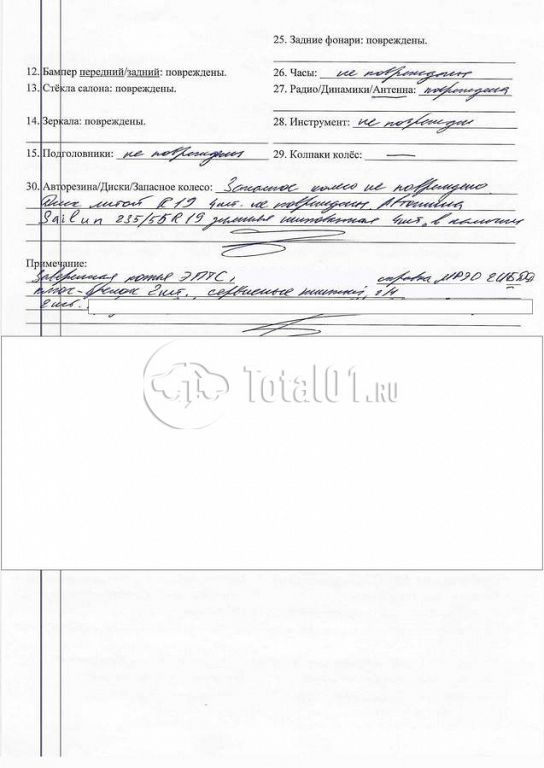 25. Задние фонари: повреждены.
12. Бампер передний/задний: повреждены.
26. Часы: не повреждены
13. Стёкла салона: повреждены.
27. Радио/Динамики/Антенна: повреждена
14. Зеркала: повреждены.
28. Инструмент: не поврежден
15. Подголовники: не повреждены
29. Колпаки колёс: —
30. Авторезина/Диски/Запасное колесо: Запасное колесо не повреждено.
Диск литой R19 4шт. не повреждены. Автошина
Sailun 235/55R19 зимняя шипованная 4шт. в наличии
Примечание:
Заверенная копия ЭПТС, справка
2шт., сервисные книжки,
Total01.ru